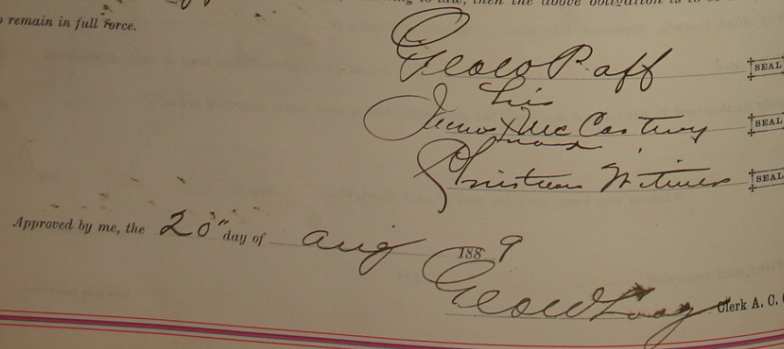 law, then the above obligation is to be
o remain in full force.
Geo W Raff SEAL
his
James X McCartney SEAL
mark
Christian Witmer SEAL
Approved by me, the 20" day of Aug 1889
Geo W Loag Clerk A. C.